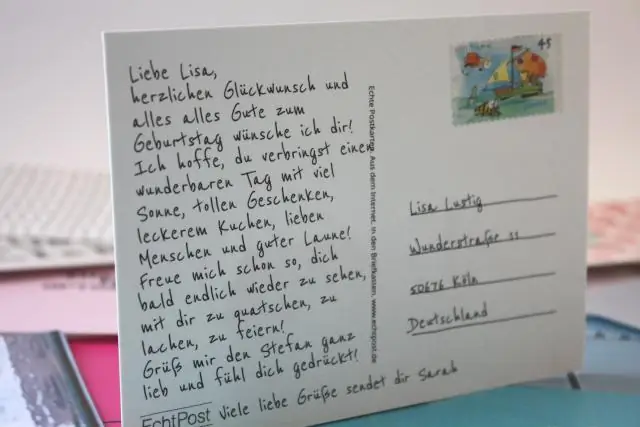 Liebe Lisa,
herzlichen Glückwunsch und
alles alles Gute zum
Geburtstag wünsche ich dir!
Ich hoffe, du verbringst einen
wunderbaren Tag mit viel
Sonne, tollen Geschenken,
leckerem Kuchen, lieben
Menschen und guter Laune!
Freue mich schon so, dich
bald endlich wieder zu sehen,
mit dir zu quatschen, zu
lachen, zu feiern!
Grüß mir den Stefan ganz
lieb und fühl dich gedrückt!
Viele liebe Grüße sendet dir Sarah
EchtPost
Echte Postkarten. Aus dem Internet. In den Briefkasten. www.echtpost.de
45
Lisa Lustig
Wunderstraße 11
50676 Köln
Deutschland